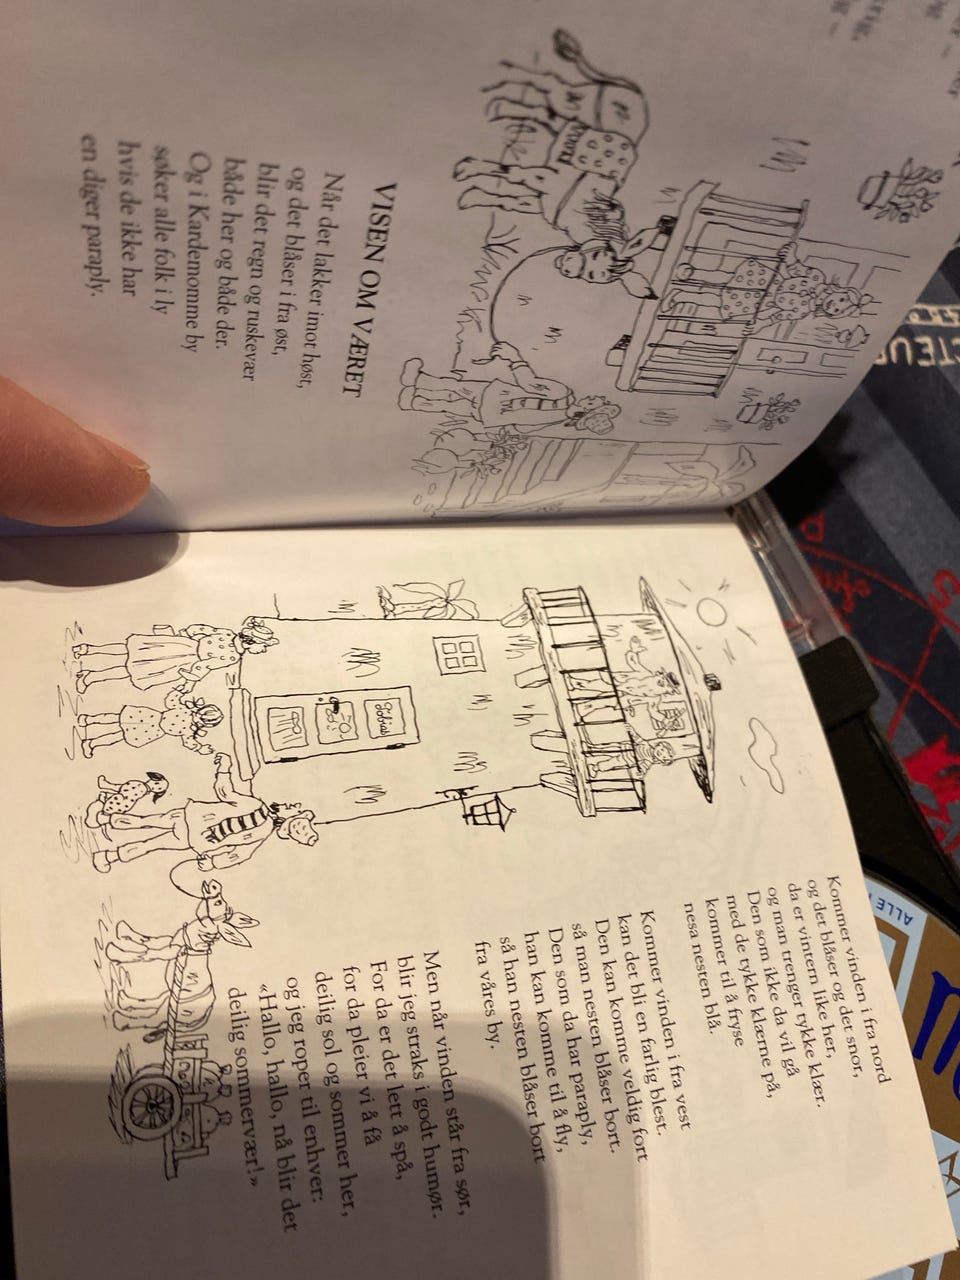 VISEN OM VÆRET
Når det lakker imot høst,
og det blåser i fra øst,
blir det regn og ruskevær
både her og både der.
Og i Kardemomme by
søker alle folk i ly
hvis de ikke har
en diger paraply.
Tobias
Kommer vinden i fra nord
og det blåser og det snor,
da er vintern like her,
og man trenger tykke klær.
Den som ikke da vil gå
med de tykke klærne på,
kommer til å fryse
nesa nesten blå.
Kommer vinden i fra vest
kan det bli en farlig blest.
Den kan komme veldig fort
så man nesten blåser bort.
Den som da har paraply,
han kan komme til å fly,
så han nesten blåser bort
fra våres by.
Men når vinden står fra sør,
blir jeg straks i godt humør.
For da er det lett å spå,
for da pleier vi å få
deilig sol og sommer her,
og jeg roper til enhver:
«Hallo, hallo, nå blir det
deilig sommervær!»
ALLE